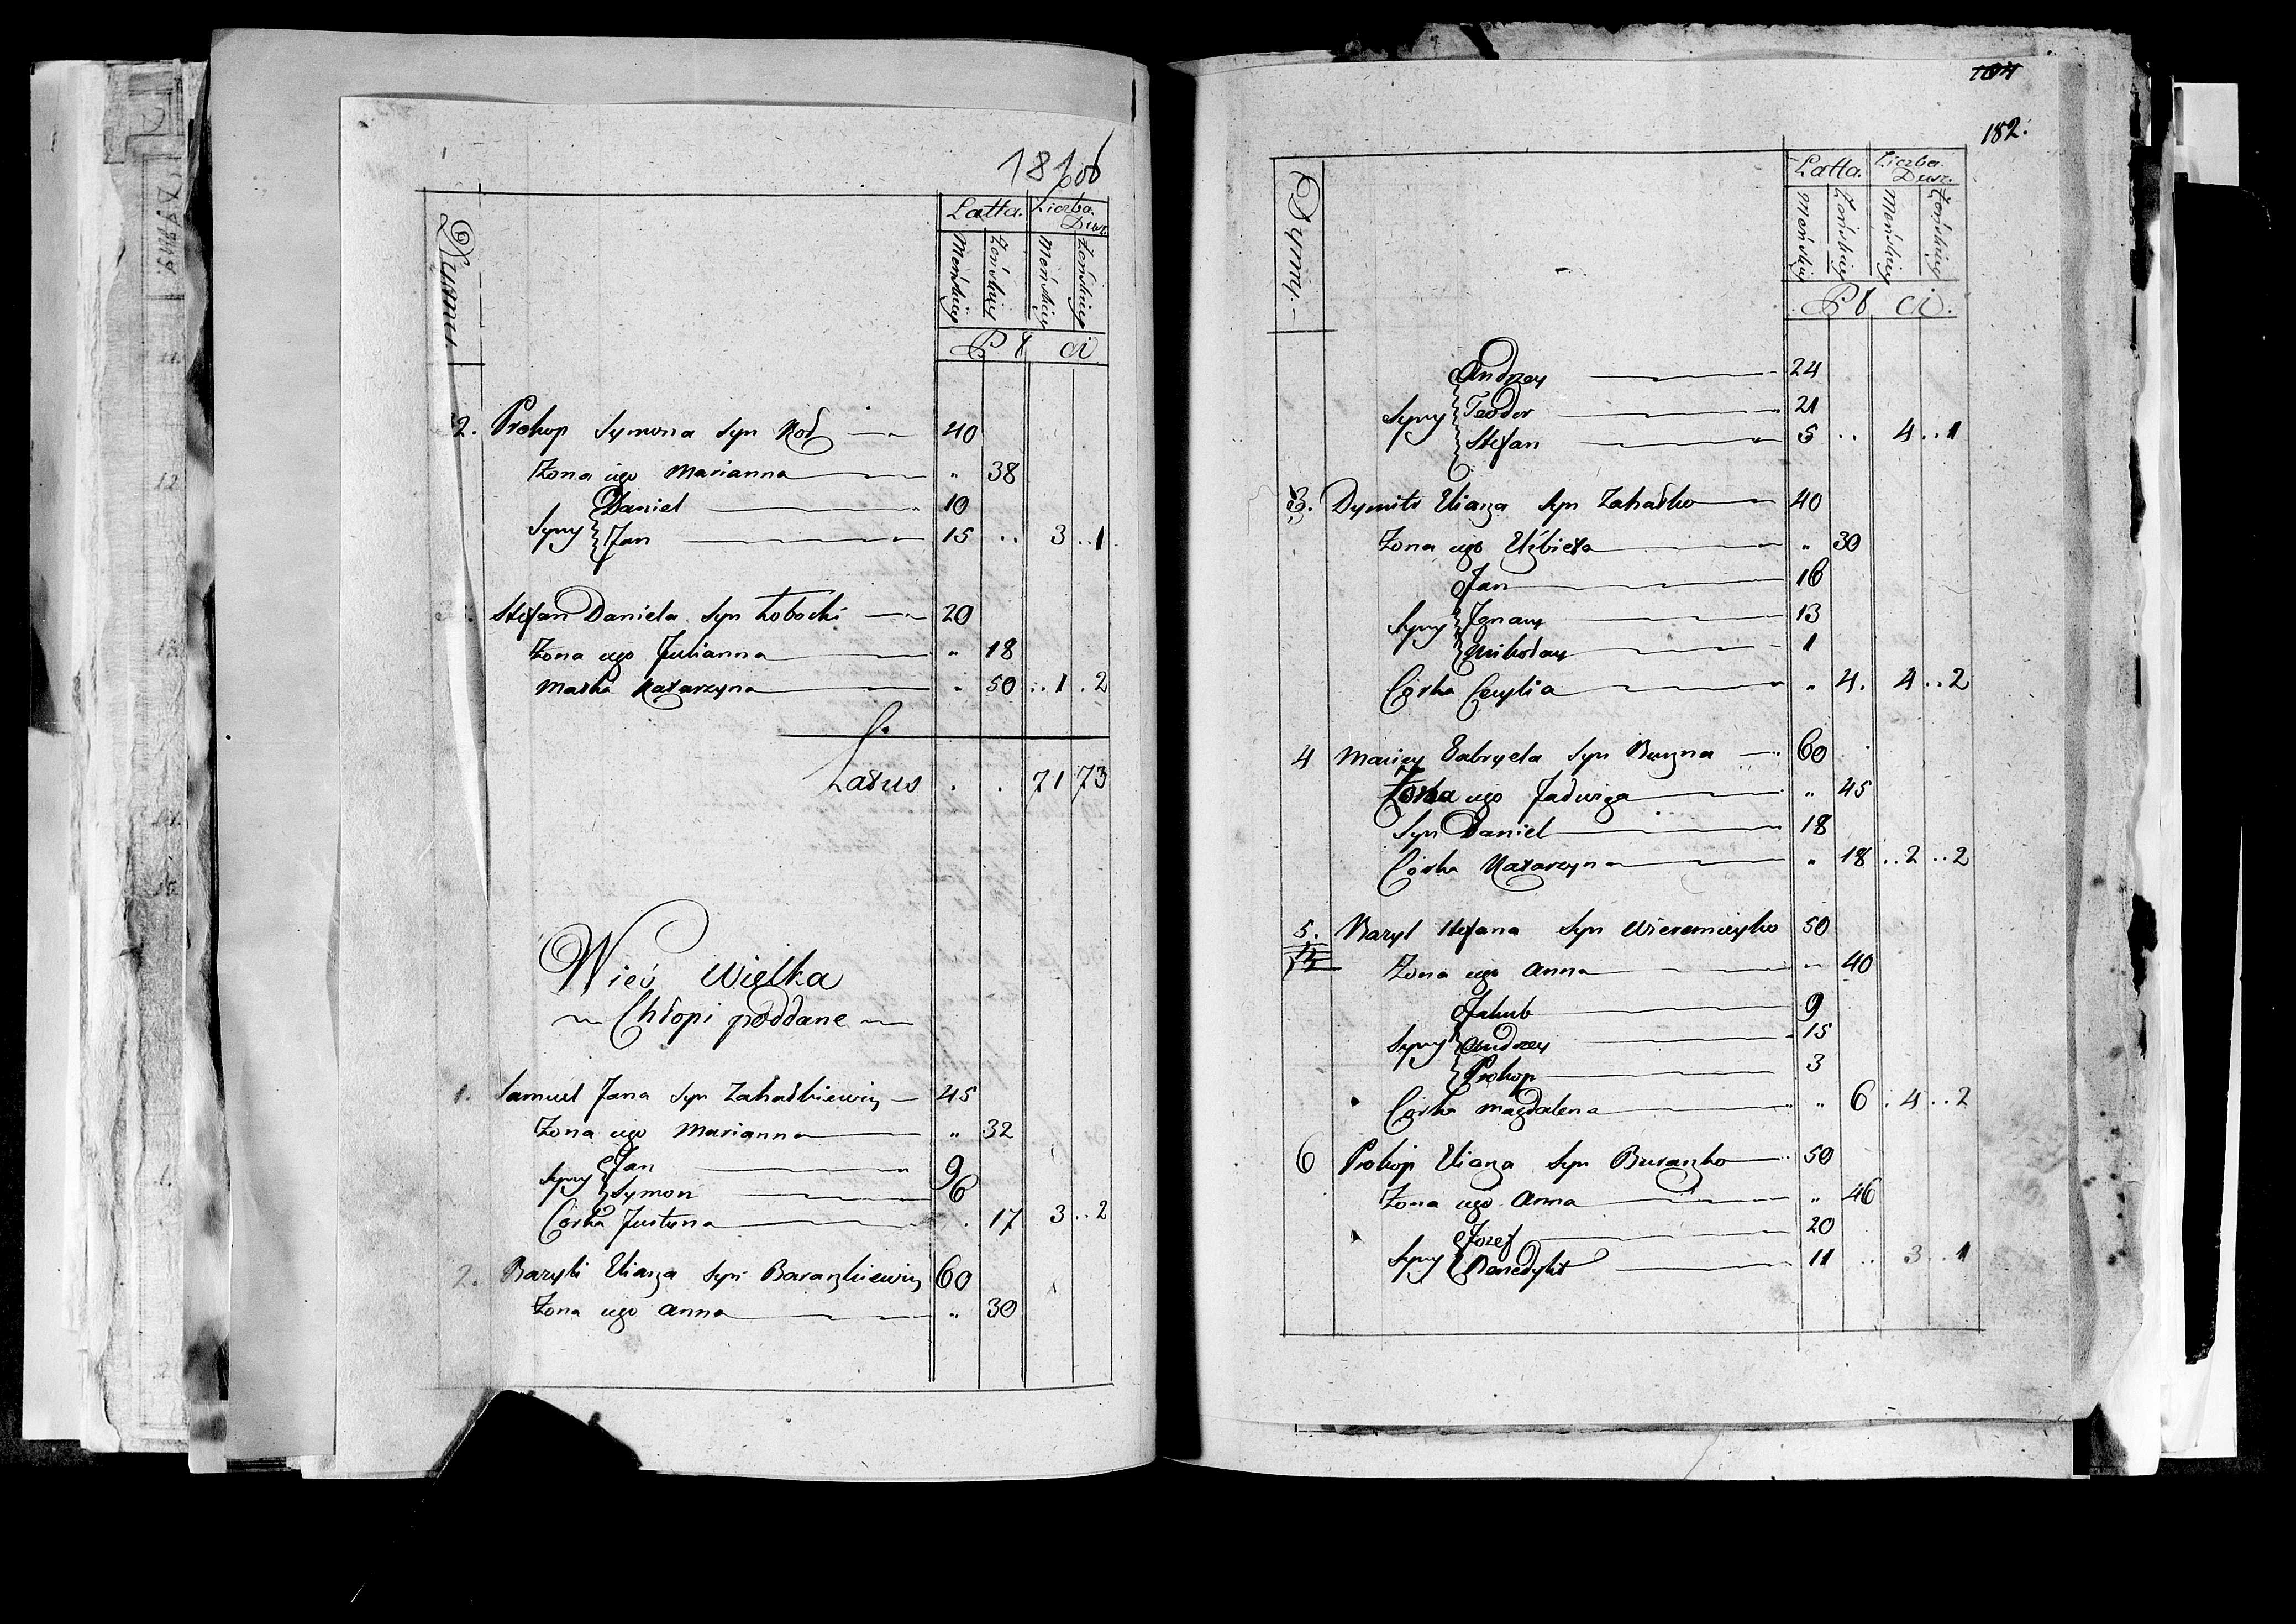 181 об
Dymy.
Latta. Liczba Dusz.
Męńskiey Żeńskiey Męńskiey Żeńskiey
Płci
2. Prokop Symona Syn Kot 40
Żona iego Marianna " 38
Syny Daniel 10
Jan 15 .. 3 .. 1
3. Stefan Daniela Syn Łobocki 20
Żona iego Julianna " 18
Matka Katarzyna " 50 .. 1 .. 2
Latus . . 71 73
Wieś Wielka
Chłopi poddane
1. Samuel Jana Syn Zahadkiewicz 45
Żona iego Marianna " 32
Syny Jan 9
Symon 6
Córka Justyna . 17 3 .. 2
2. Bazyli Eliasza Syn Baraszkiewicz 60
Żona iego Anna " 30
104
182.
Dymy.
Latta. Liczba Dusz.
Męńskiey Żeńskiey Męńskiey Żeńskiey
Płci.
Andrzey 24
Syny Teodor 21
Stefan 5 .. 4 .. 1
3. Dymitr Eliasza Syn Zahadko 40
Żona iego Elżbieta " 30
Jan 16
Syny Ignacy 13
Mikołay 1
Córka Cecylia " 4. 4 .. 2
4 Maciey Gabryela Syn 60
Żona iego Jadwiga " 45
Syn Daniel 18
Córka Katarzyna " 18 .. 2 .. 2
5. Bazyl Stefana Syn Wieremieyko 50
Żona iego Anna " 40
Jakub 9
Syny Andrzey 15
Prokop 3
Córka Magdalena " 6 . 4 .. 2
6 Prokop Eliasza Syn Buraszko 50
Żona iego Anna " 46
Jozef 20
Syny Benedykt 11 .. 3 .. 1